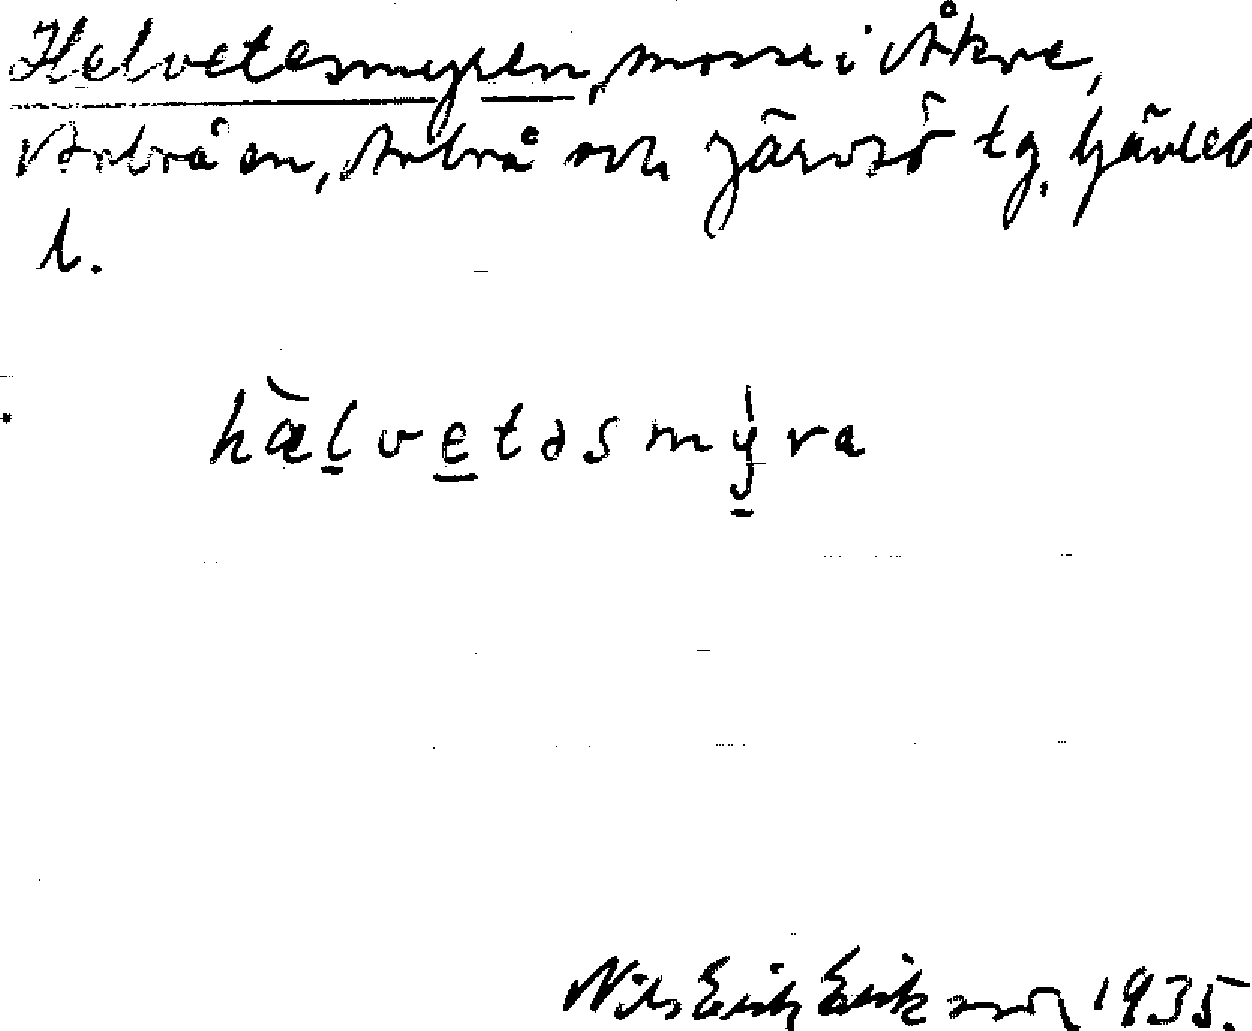 Helvetesmyren, mosse i Åkre,
Arbrå sn, Arbrå och Järvsö tg, Gävleb
l.
hælvetəsmýra
Nils Erik Eriksson 1935.